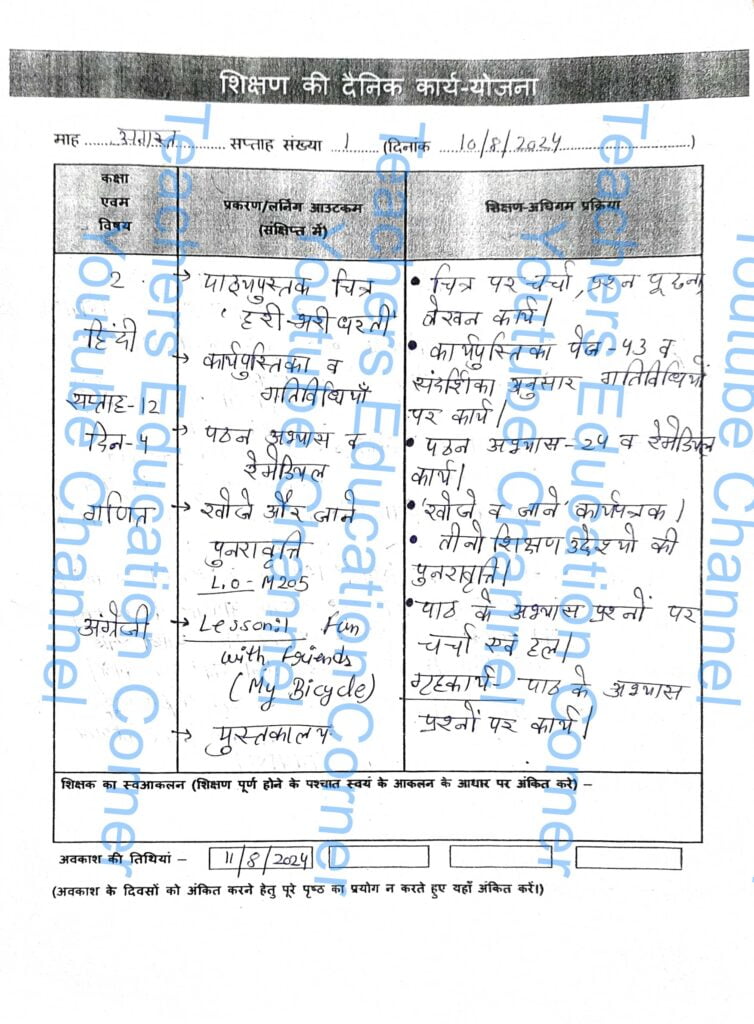 शिक्षण की दैनिक कार्य-योजना
माह ........अगस्त............ सप्ताह संख्या ...1...... (दिनांक ....10/8/2024..............................)
कक्षा
एवम
विषय
प्रकरण/लर्निंग आउटकम
(संक्षिप्त में)
शिक्षण-अधिगम प्रक्रिया
2
हिंदी
सप्ताह-12
दिन-4
→ पाठ्यपुस्तक चित्र
'हरी-भरी धरती'
→ कार्यपुस्तिका व
गतिविधियाँ
→ पठन अभ्यास व
रेमेडियल
• चित्र पर चर्चा, प्रश्न पूछना,
लेखन कार्य।
• कार्यपुस्तिका पेज-43 व
संदर्शिका अनुसार गतिविधियों
पर कार्य।
• पठन अभ्यास-24 व रेमेडियल
कार्य।
गणित
→ खोजें और जाने
पुनरावृत्ति
L.O-M205
• 'खोजे व जाने' कार्यपत्रक।
• तीनो शिक्षण उद्देश्यो की
पुनरावृत्ति।
अंग्रेजी
→ Lesson:1 Fun
with Friends
(My Bicycle)
→ पुस्तकालय
• पाठ के अभ्यास प्रश्नों पर
चर्चा एवं हल।
गृहकार्य- पाठ के अभ्यास
प्रश्नों पर कार्य।
शिक्षक का स्वआकलन (शिक्षण पूर्ण होने के पश्चात स्वयं के आकलन के आधार पर अंकित करे) –
अवकाश की तिथियां – 11/8/2024
(अवकाश के दिवसों को अंकित करने हेतु पूरे पृष्ठ का प्रयोग न करते हुए यहाँ अंकित करें।)
Teachers Education Corner
Youtube Channel
Teachers Education Corner
Youtube Channel
Teachers Education Corner
Youtube Channel